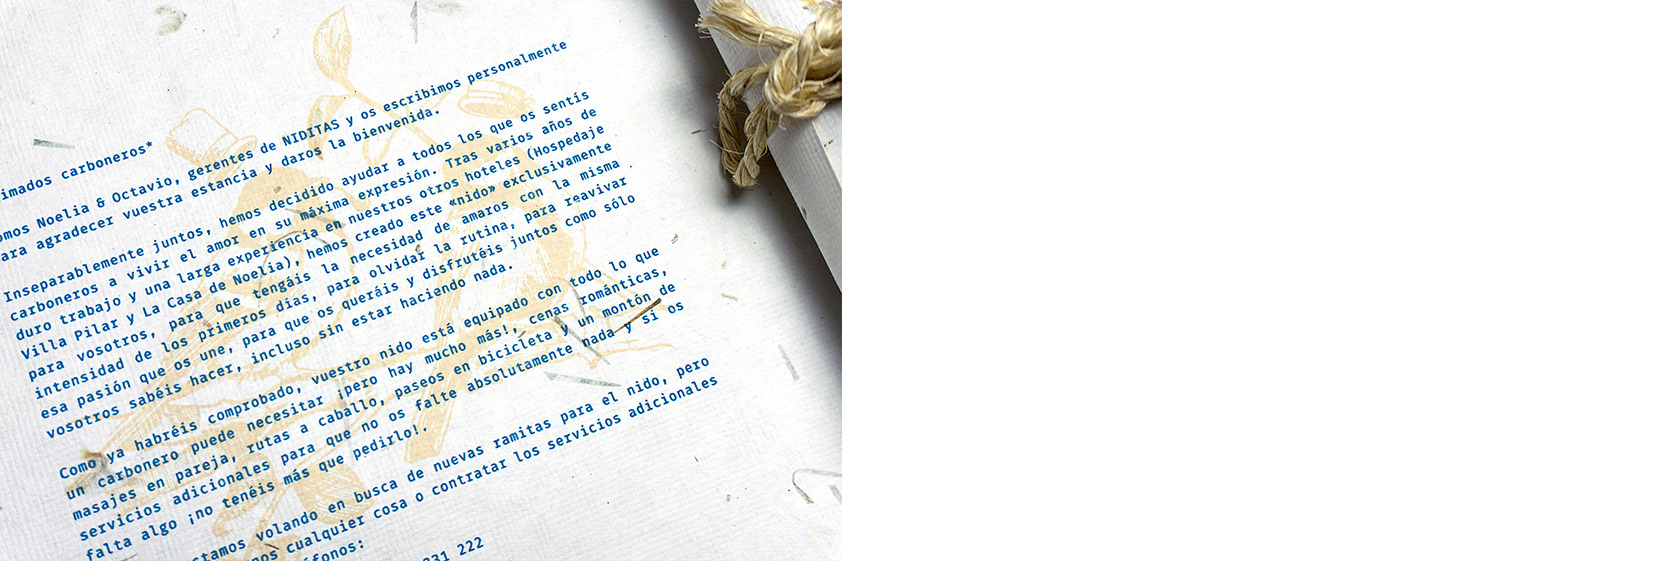 imados carboneros*
omos Noelia & Octavio, gerentes de NIDITAS y os escribimos personalmente
ara agradecer vuestra estancia y daros la bienvenida.
Inseparablemente juntos, hemos decidido ayudar a todos los que os sentís
carboneros a vivir el amor en su máxima expresión. Tras varios años de
duro trabajo y una larga experiencia en nuestros otros hoteles (Hospedaje
Villa Pilar y La Casa de Noelia), hemos creado este «nido» exclusivamente
para vosotros, para que tengáis la necesidad de amaros con la misma
intensidad de los primeros días, para olvidar la rutina, para reavivar
esa pasión que os une, para que os queráis y disfrutéis juntos como sólo
vosotros sabéis hacer, incluso sin estar haciendo nada.
Como ya habréis comprobado, vuestro nido está equipado con todo lo que
un carbonero puede necesitar ¡pero hay mucho más!, cenas románticas,
masajes en pareja, rutas a caballo, paseos en bicicleta y un montón de
servicios adicionales para que no os falte absolutamente nada y si os
falta algo ¡no tenéis más que pedirlo!.
stamos volando en busca de nuevas ramitas para el nido, pero
nos cualquier cosa o contratar los servicios adicionales
éfonos:
231 222